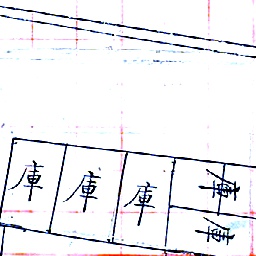 庫
庫
庫
庫
庫